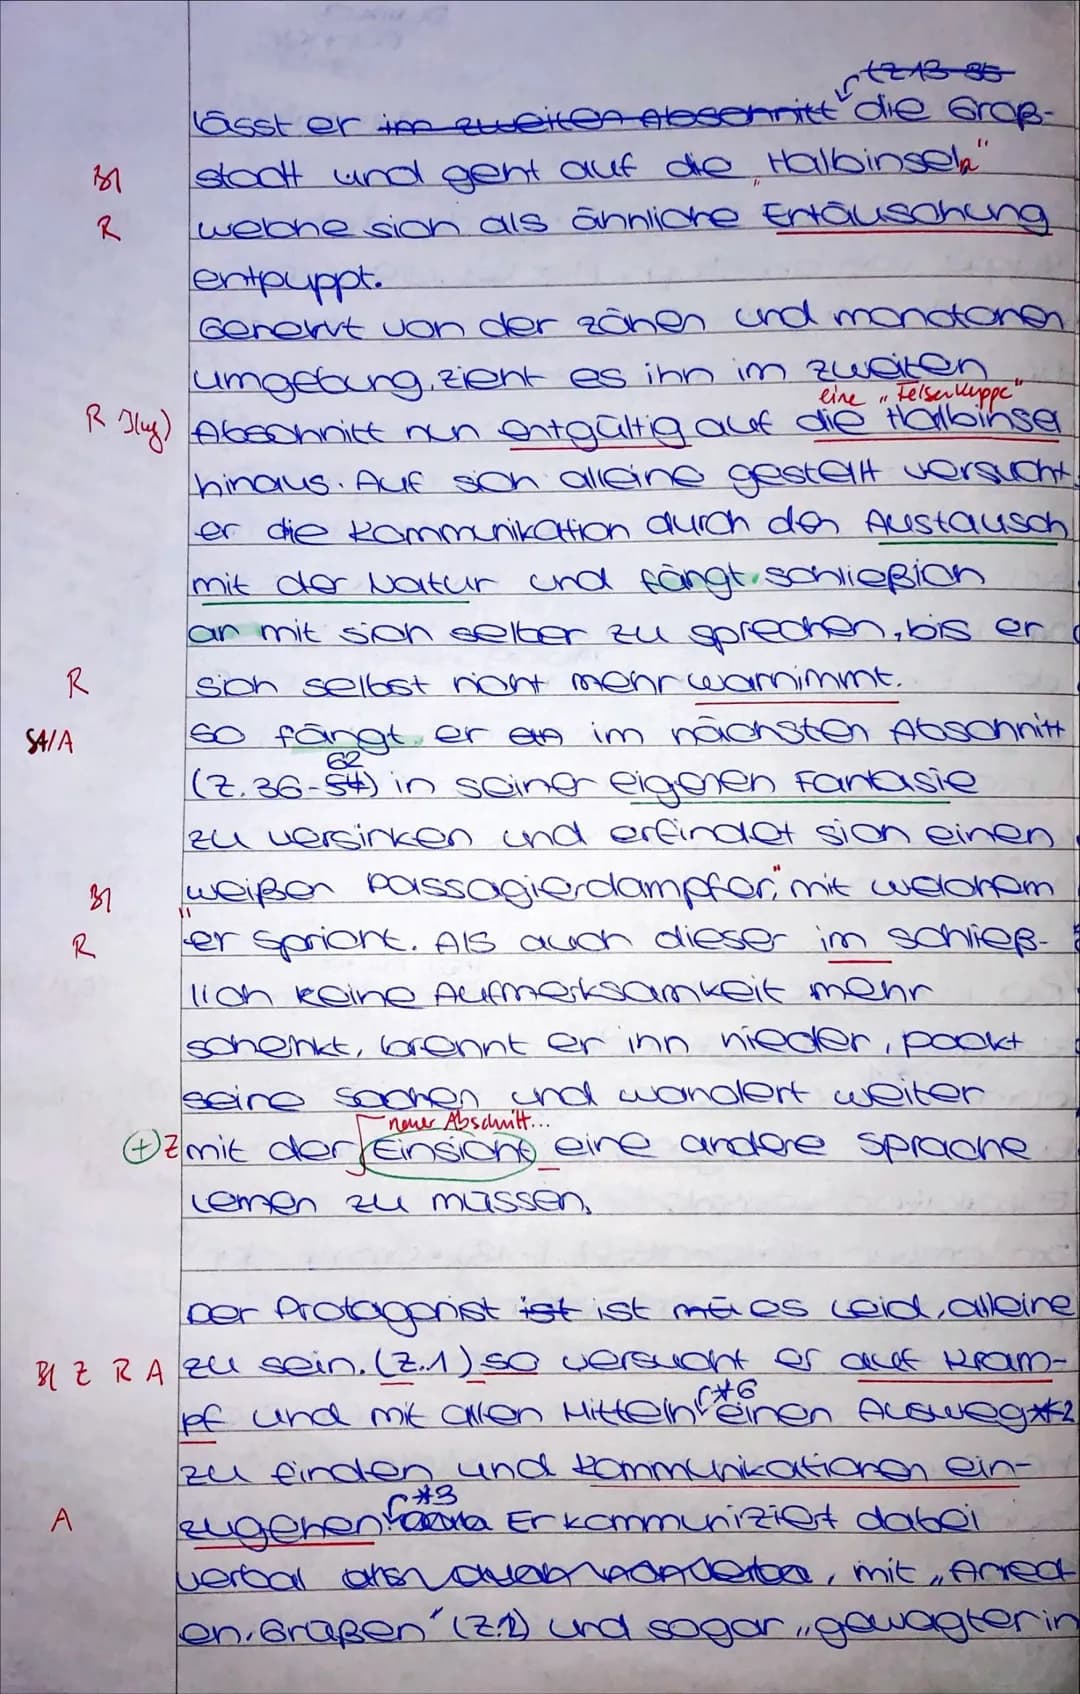 (Z 13-35
lässt er im zweiten Abschnitt die Groß-
Bl stadt und geht auf die „Halbinsel"
R welche sich als änliche Entäuschung
entpuppt.
Genervt von der zähen und monotonen
Umgebung, zieht es ihn im zweiten
eine „Felsenkuppe"
R Abschnitt nun entgültig auf die Halbinsel
hinaus. Auf sich alleine gestellt versucht
er die Kommunikation durch den Austausch
mit der Natur und fängt schließich
an mit sich selber zu sprechen, bis er
R sich selbst nicht mehr warnimmt.
SA/A So fängt er im nächsten Abschnitt
62
(Z. 36-54) in seiner eigenen Fantasie
zu versinken und erfindet sich einen
Bl weißen Passagierdampfer," mit welchem
R "er spricht. Als auch dieser im schließ-
lich keine Aufmerksamkeit mehr
schenkt, brennt er ihn nieder, packt
seine Sachen und wandert weiter
neuer Abschnitt...
+ Z mit der Einsicht eine andere Sprache
lernen zu müssen.
Der Protagonist ist ist es Leid, alleine
Bl Z R A zu sein. (Z.1) so versucht er auf Kram-
*6
pf und mit allen Mitteln einen Ausweg *2
zu finden und Kommunikationen ein-
*3
A zugehen. Er kommuniziert dabei
verbal, mit „Anred
en, Grüßen" (Z.2) und sogar „gewagteren